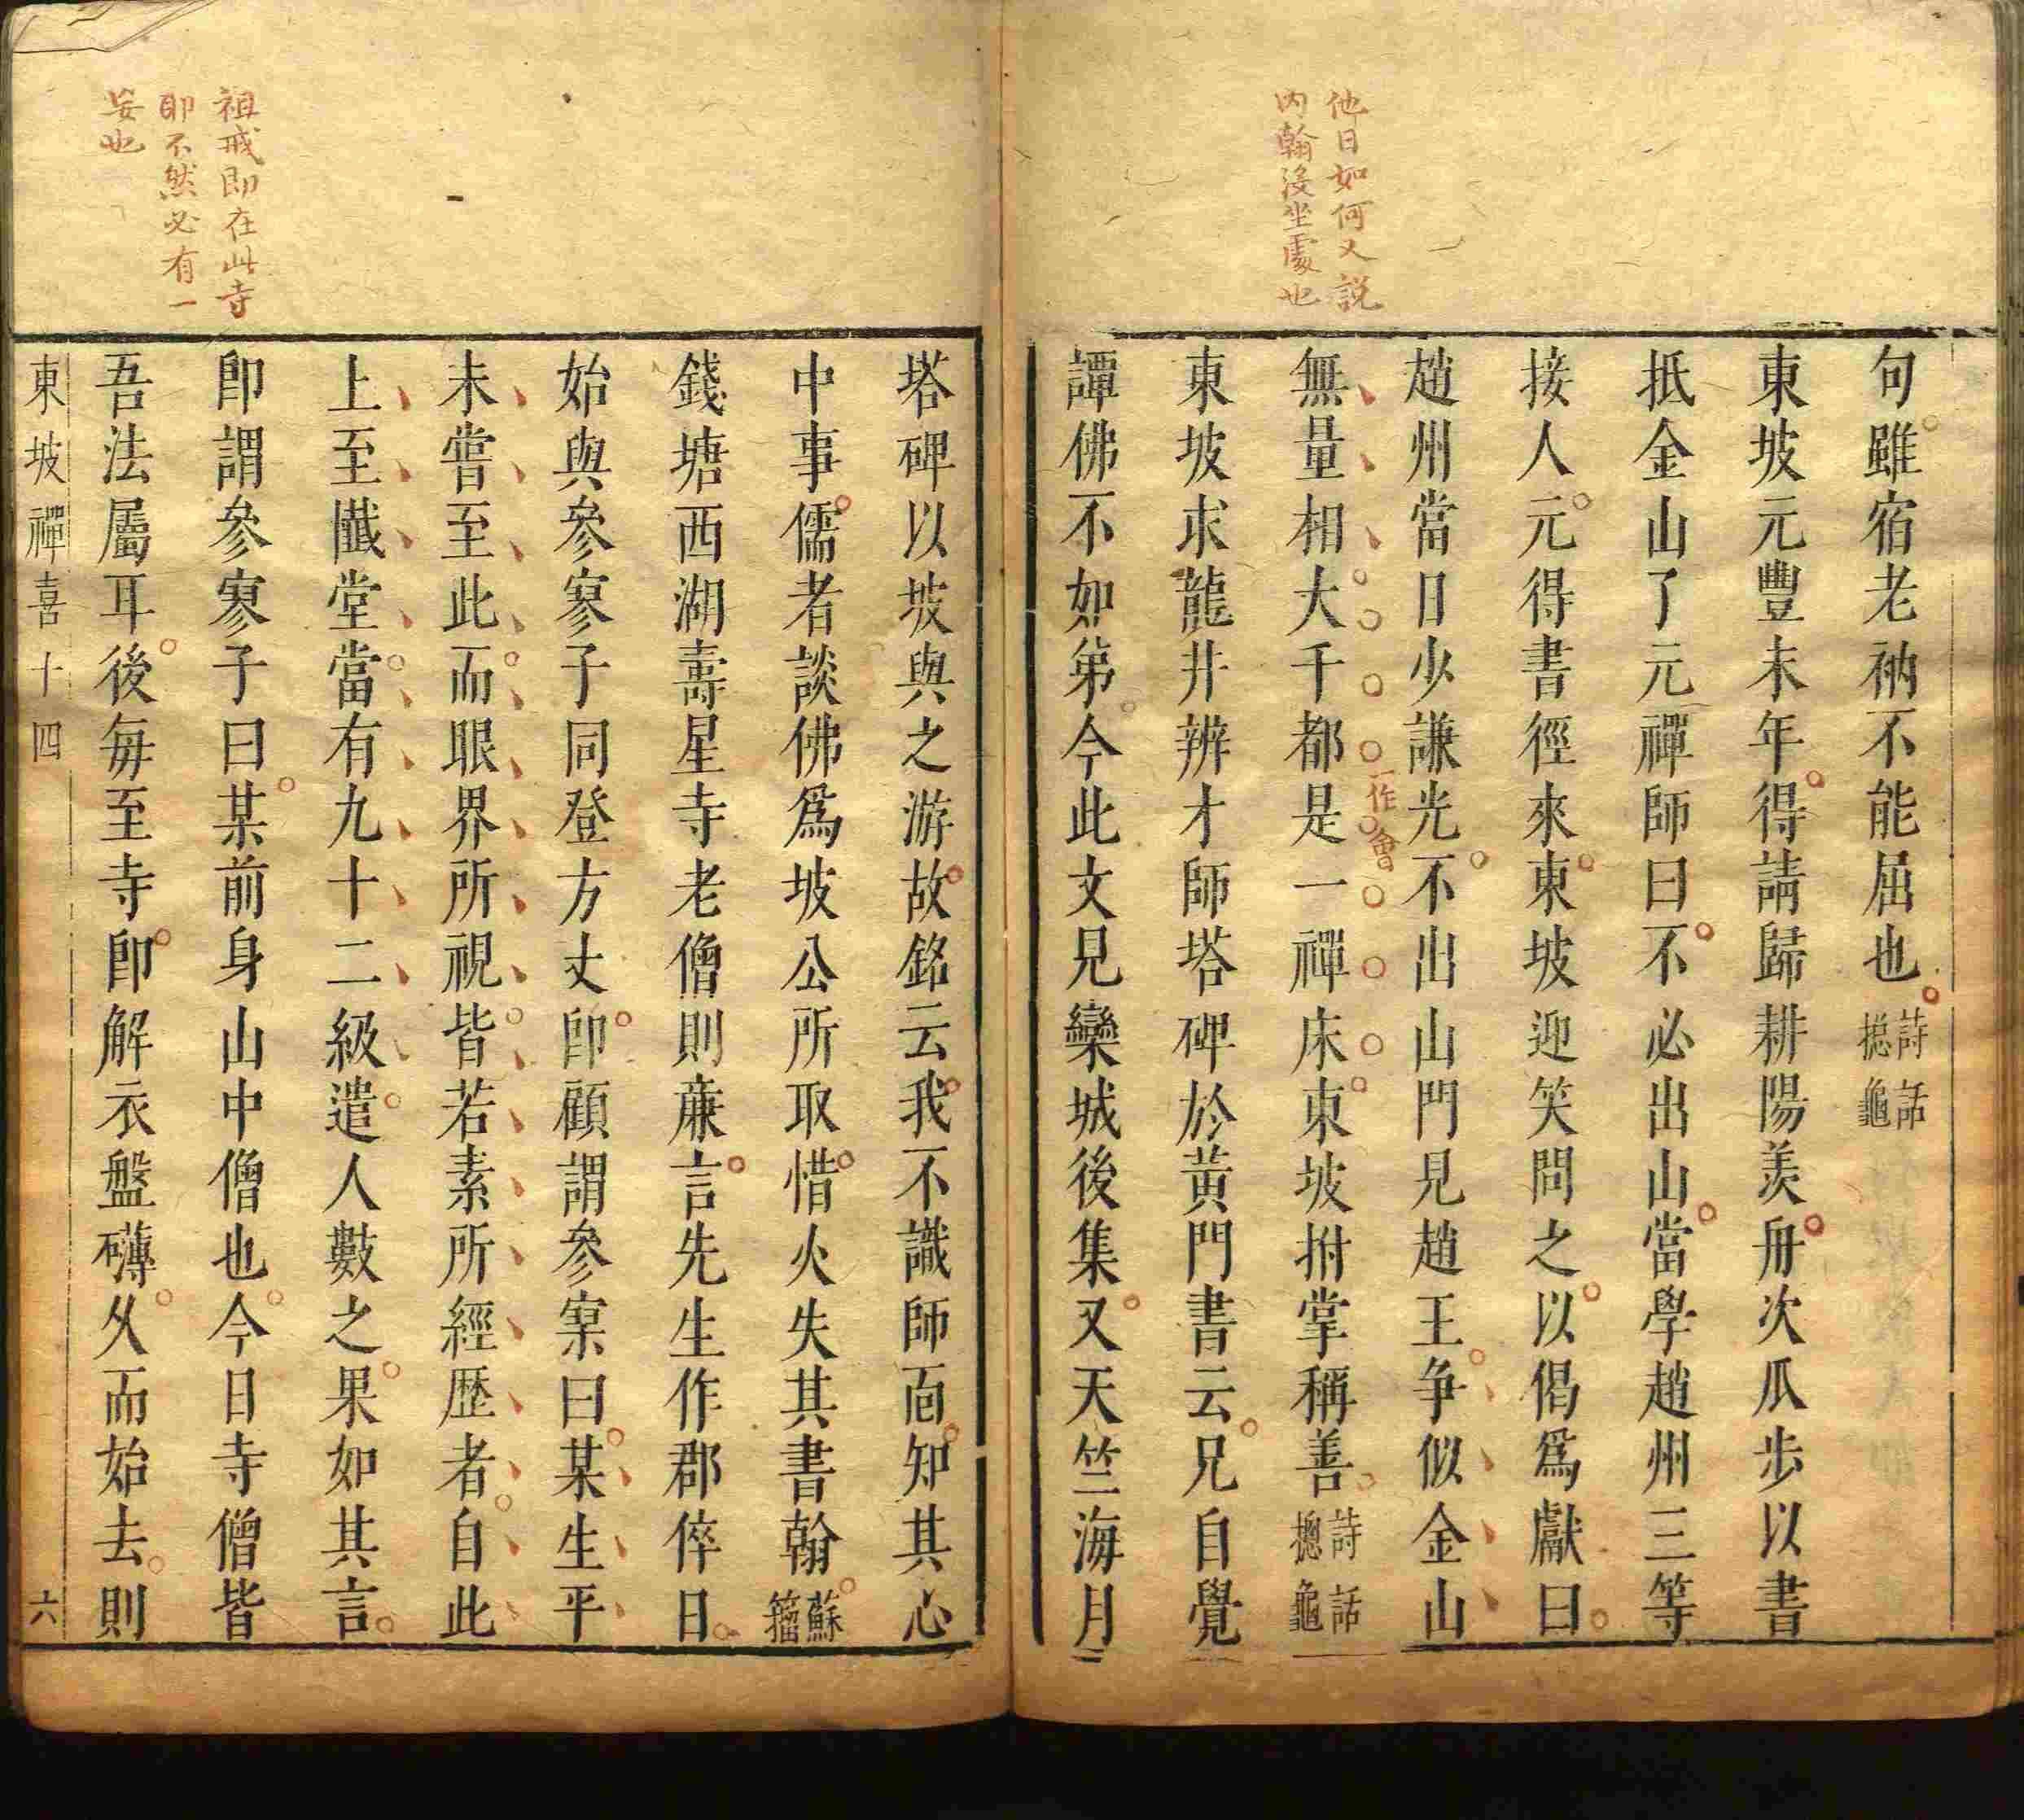 他日如何又說
內翰沒坐處也
句雖宿老衲不能屈也詩話
摠龜
東坡元豐末年得請歸耕陽羨舟次瓜步以書
抵金山了元禪師曰不必出山當學趙州三等
接人元得書徑來東坡迎笑問之以偈爲獻曰
趙州當日少謙光不出山門見趙王争似金山
無量相大千都是一禪床東坡拊掌稱善詩話
摠龜
一作會
東坡求龍井辨才師塔碑於黃門書云兄自覺
譚佛不如弟今此文見欒城後集又天竺海月
塔碑以坡與之游故銘云我不識師面知其心
中事儒者談佛爲坡公所取惜火失其書翰蘇
籀
錢塘西湖壽星寺老僧則廉言先生作郡倅日
始與參寥子同登方丈卽顧謂參寥曰某生平
未嘗至此而眼界所視皆若素所經歷者自此
上至懺堂當有九十二級遣人數之果如其言
卽謂參寥子曰某前身山中僧也今日寺僧皆
吾法屬耳後每至寺卽解衣盤礴久而始去則
祖戒即在此寺
即不然必有一
妄也
東坡禪喜十四 六